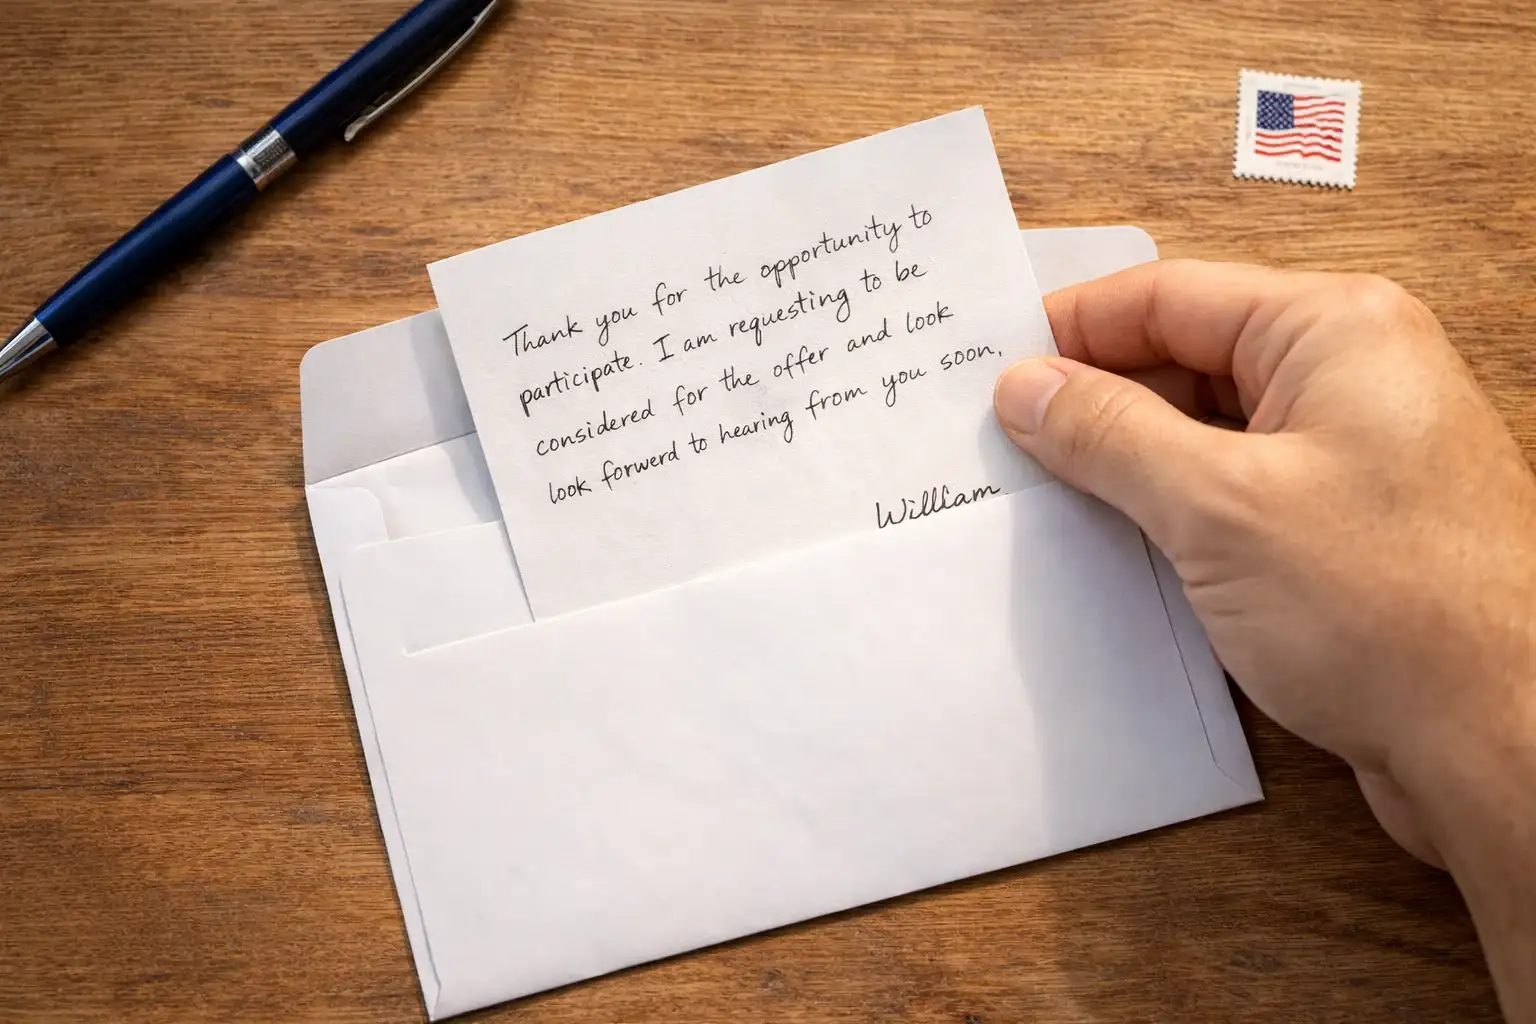 Thank you for the opportunity to
participate. I am requesting to be
considered for the offer and look
look forwerd to hearing from you soon.
William